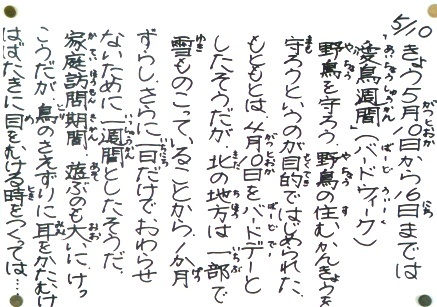 5/10
きょう5月10日から16日までは
「愛鳥週間」(バードウィーク)
野鳥を守ろう、野鳥の住むかんきょうを
守ろうというのが目的ではじめられた。
もともとは、4月10日をバードデーと
したそうだが、北の地方は一部で
雪ものこっていることから、1か月
ずらし、さらに一日だけでおわらせ
ないために一週間としたそうだ。
家庭訪問期間、遊ぶのも大いにけっ
こうだが、鳥のさえずりに耳をかたむけ
はばたきに目をむける時をつくっては…